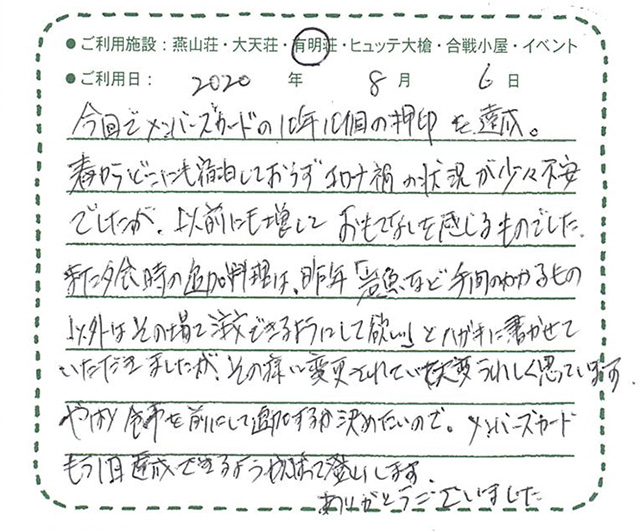 ●ご利用施設：燕山荘・大天荘・有明荘・ヒュッテ大槍・合戦小屋・イベント
●ご利用日： 2020 年 8 月 6 日
今回でメンバーズカードの10年10個の押印を達成。
春からどこにも宿泊しておらずコロナ禍の状況が少々不安
でしたが、以前にも増して おもてなしを感じるものでした。
また夕食時の追加料理は、昨年「岩魚など手間のかかるもの
以外はその場で注文できるようにして欲しい」とハガキに書かせて
いただきましたが、その様に変更されていて大変うれしく思っています。
やはり食事を前にして追加するか決めたいので。メンバーズカード
もう1回達成できるよう 登山します。
ありがとうございました